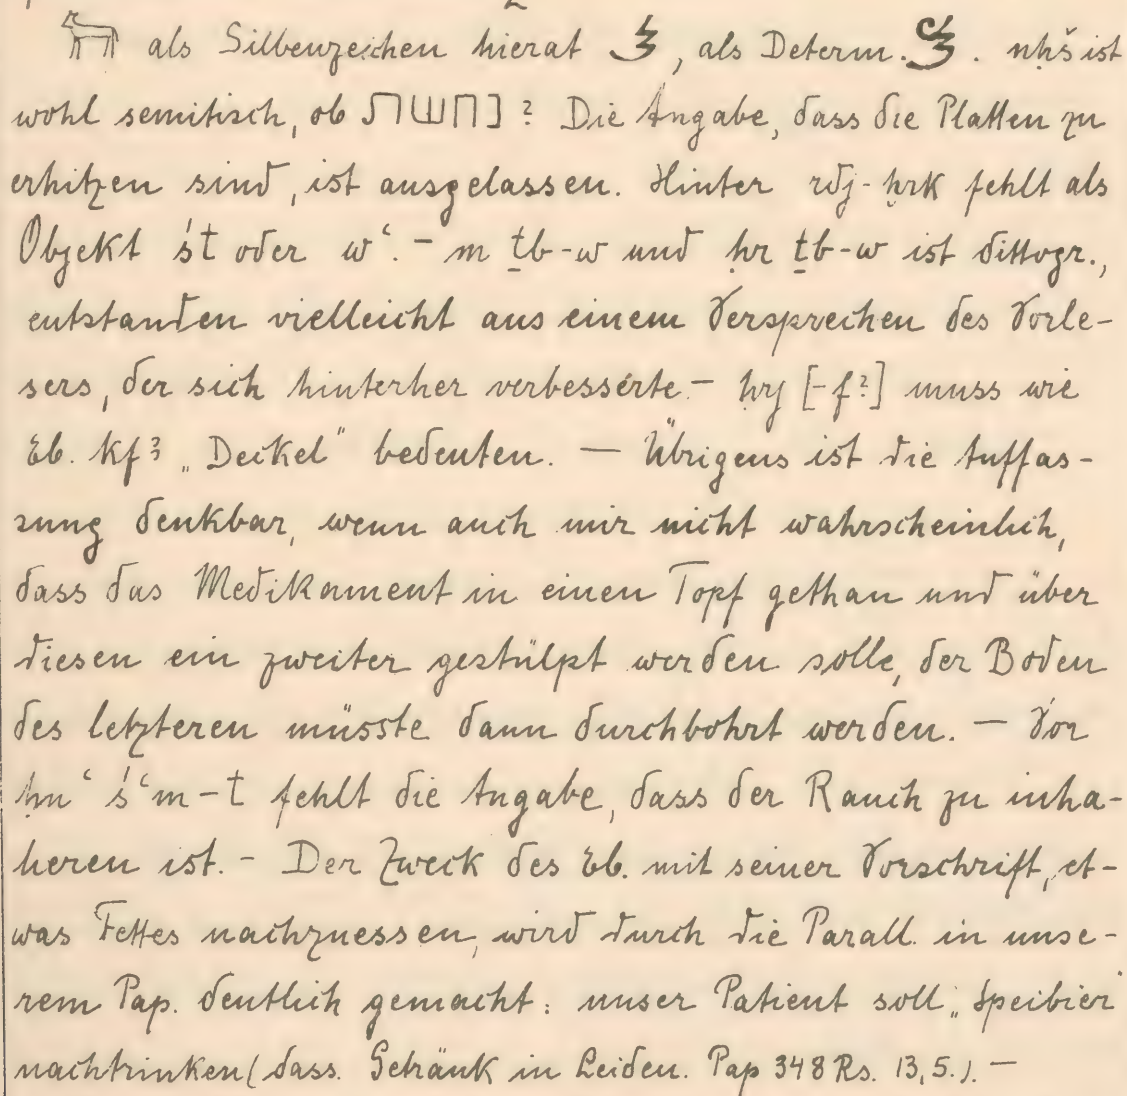 als Silbenzeichen hierat , als Determ. . nḥš ist
wohl semitisch, ob נחשת? Die Angabe, dass die Platten zu
erhitzen sind, ist ausgelassen. Hinter rdj-ḥrk fehlt als
Objekt śt oder wʿ. – m ṯb-w und ḥr ṯb-w ist dittogr.,
entstanden vielleicht aus einem Versprechen des Vorle-
sers, der sich hinterher verbesserte. – ḥrj [-f?] muss wie
Eb. kfꜣ „Deckel“ bedeuten. — Übrigens ist die Auffas-
sung denkbar, wenn auch mir nicht wahrscheinlich,
dass das Medikament in einen Topf gethan und über
diesen ein zweiter gestülpt werden solle, der Boden
des letzteren müsste dann durchbohrt werden. — Vor
ḥnʿ śʿm-t fehlt die Angabe, dass der Rauch zu inha-
lieren ist. – Der Zweck des Eb. mit seiner Vorschrift, et-
was Fettes nachzuessen, wird durch die Parall. in unse-
rem Pap. deutlich gemacht: unser Patient soll „Speibier“
nachtrinken (dass. Getränk in Leiden. Pap 348 Rs. 13,5.). —